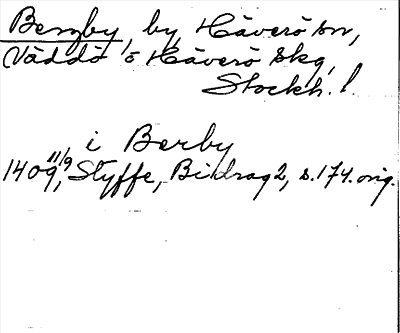 Bergby, by, Häverö sn,
Väddö o Häverö skg,
Stockh. l.
i Berby
1409 11/9, Styffe, Bidrag 2, s. 174. orig.